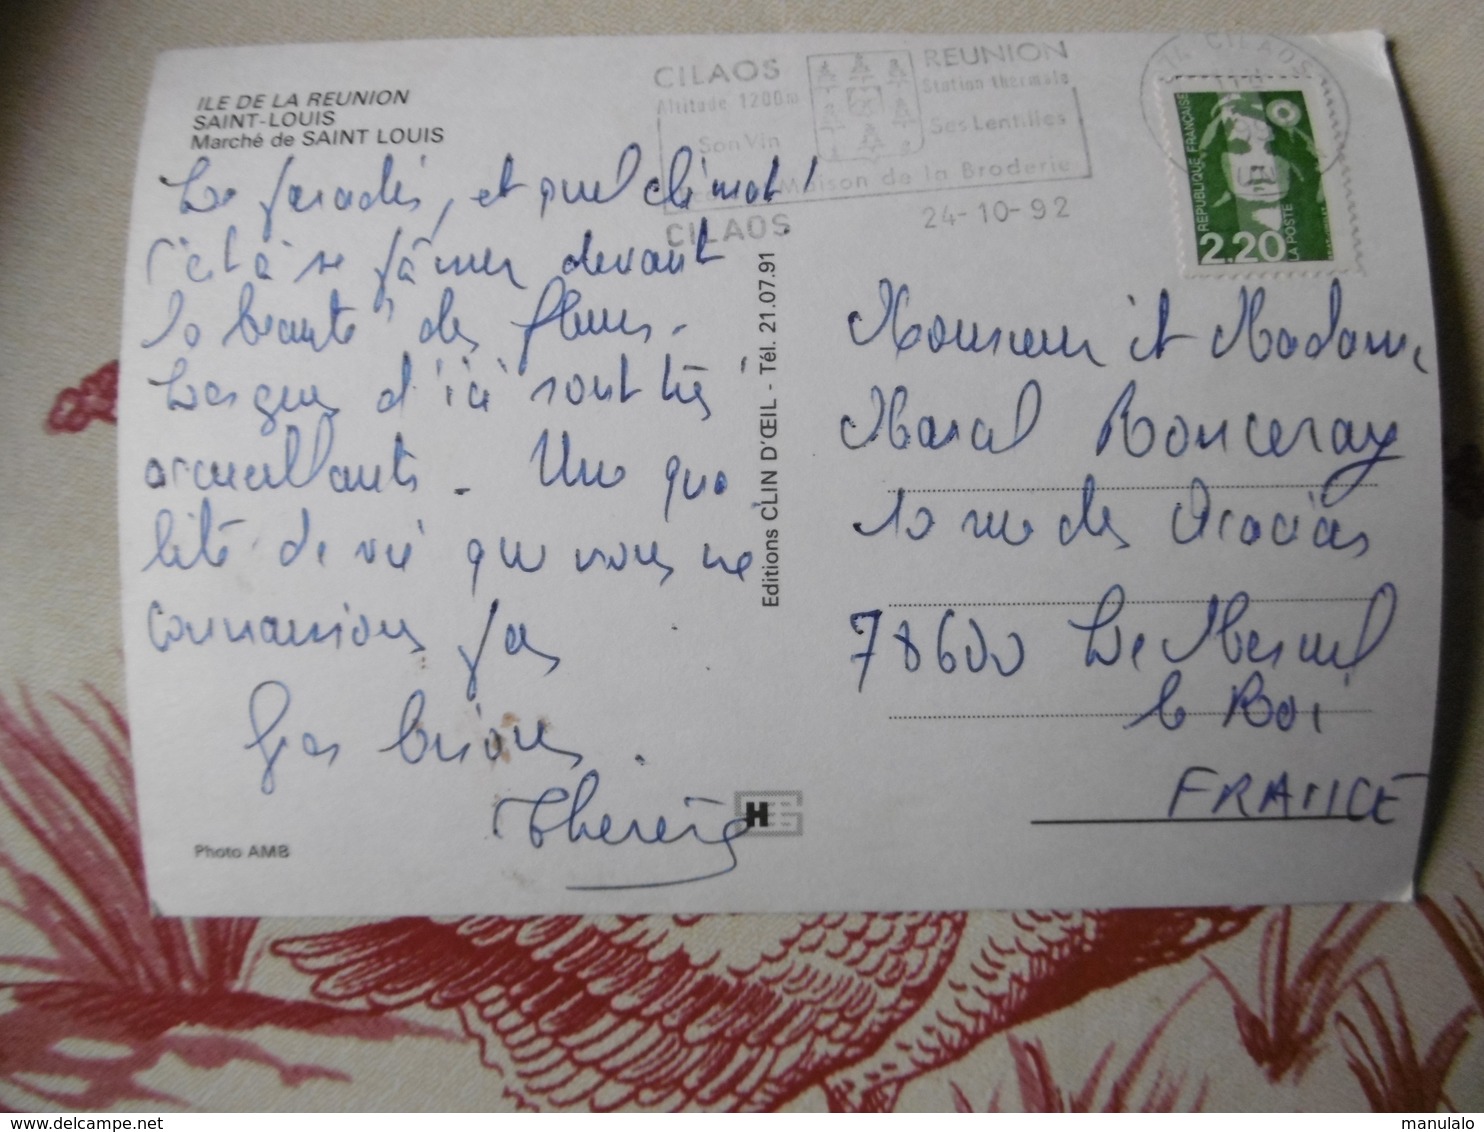 ILE DE LA REUNION
SAINT-LOUIS
Marché de SAINT LOUIS
Le paradis, et quel climat !
c'est à se pâmer devant
la beauté des fleurs.
Les gens d'ici sont très
accueillants. Une qua
lité de vie que nous ne
connaissons pas
Gros bisous.
Therese
Photo AMB
Editions CLIN D'ŒIL - Tél. 21.07.91
CILAOS
Altitude 1200m
Son Vin
REUNION
Station thermale
Ses Lentilles
Maison de la Broderie
CILAOS
24-10-92
CILAOS
REPUBLIQUE FRANÇAISE
2.20
LA POSTE
Monsieur et Madame
Marcel Ronceray
10 rue des Acacias
78600 Le Mesnil
le Roi
FRANCE
manulalo